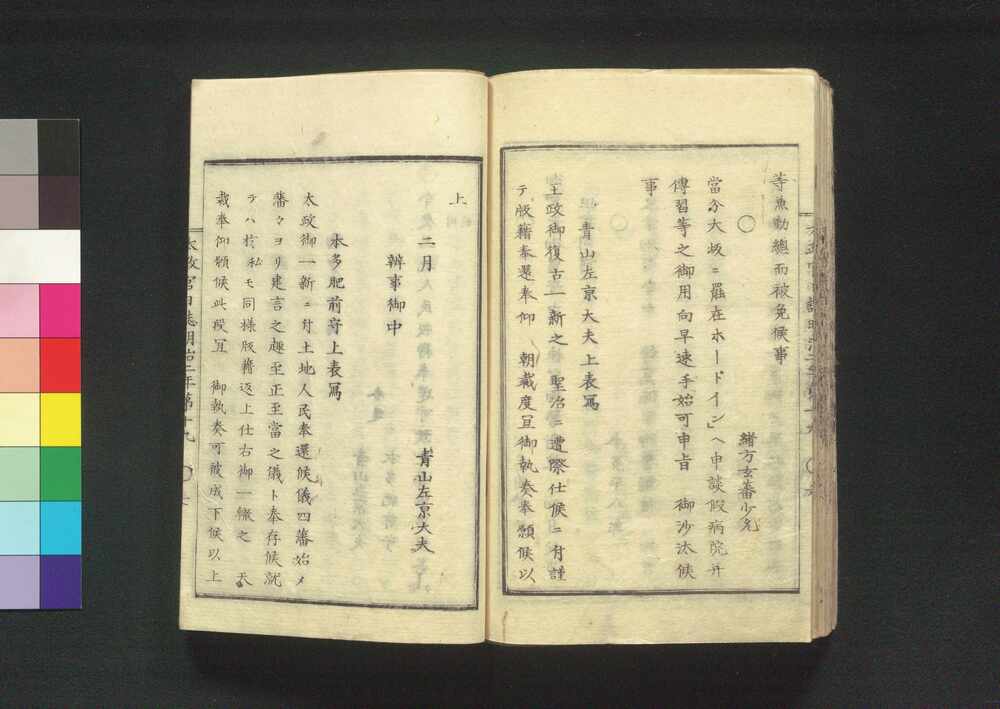 等兼勤總而被免候事
○
緒方玄蕃少允
當分大坂ニ罷在ホードイン」ヘ申談假病院幷
傳習等之御用向早速手始可申旨　御沙汰候
事
○
青山左京大夫上表寫
王政御復古一新之　聖治ニ遭際仕候ニ付謹
テ版籍奉還奉仰　朝裁度宜御執奏奉願候以
上
二月　青山左京大夫
辨事御中
本多肥前守上表寫
太政御一新ニ付土地人民奉還候儀四藩始メ
藩々ヨリ建言之趣至正至當之儀ト奉存候就
テハ於私モ同様版籍返上仕右御一轍之　天
裁奉仰願候此段宜　御執奏可被成下候以上
太政官日誌明治二年第十九